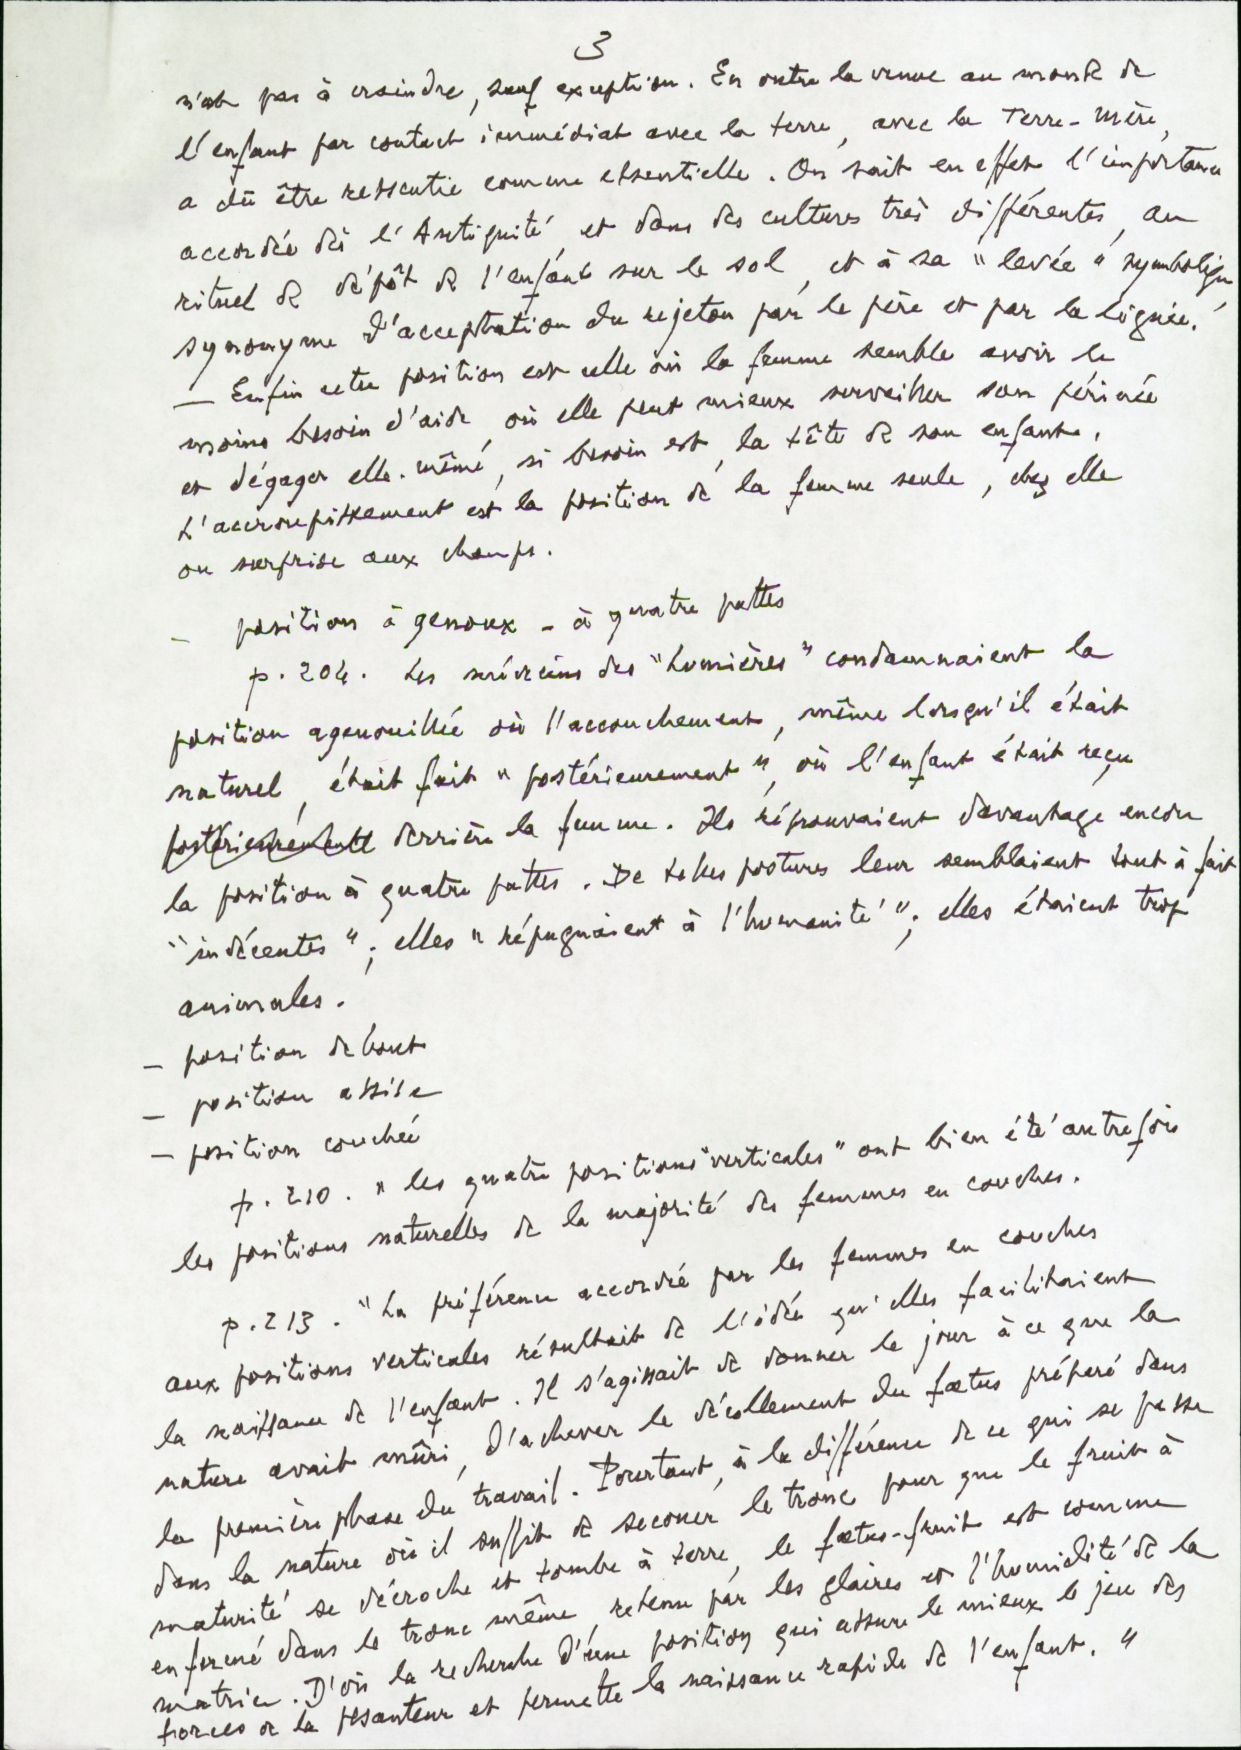 3
n'est pas à craindre, sauf exception. En outre la venue au monde de
l'enfant par contact immédiat avec la terre, avec la Terre-Mère,
a dû être ressentie comme essentielle. On sait en effet l'importance
accordée dès l'Antiquité, et dans des cultures très différentes, au
rituel de dépôt de l'enfant sur le sol, et à sa "levée" symbolique,
synonyme d'acceptation du rejeton par le père et par la lignée.
— Enfin cette position est celle où la femme semble avoir le
moins besoin d'aide, où elle peut mieux surveiller son périnée
et dégager elle-même, si besoin est, la tête de son enfant.
L'accroupissement est la position de la femme seule, chez elle
ou surprise aux champs.
– position à genoux - à quatre pattes
p. 204. Les médecins des "Lumières" condamnaient la
position agenouillée où l'accouchement, même lorsqu'il était
naturel, était fait "postérieurement", où l'enfant était reçu
postérieurement derrière la femme. Ils réprouvaient davantage encore
la position à quatre pattes. De telles postures leur semblaient tout à fait
"indécentes"; elles "répugnaient à l'humanité"; elles étaient trop
animales.
– position debout
– position assise
– position couchée
p. 210. "les quatre positions "verticales" ont bien été autrefois
les positions naturelles de la majorité des femmes en couches.
p. 213. "La préférence accordée par les femmes en couches
aux positions verticales résultait de l'idée qu'elles facilitaient
la naissance de l'enfant. Il s'agissait de donner le jour à ce que la
nature avait mûri, d'achever le décollement du fœtus préparé dans
la première phase du travail. Pourtant, à la différence de ce qui se passe
dans la nature où il suffit de secouer le tronc pour que le fruit à
maturité se décroche et tombe à terre, le fœtus-fruit est comme
enfermé dans le tronc même, retenu par les glaires et l'humidité de la
matrice. D'où la recherche d'une position qui assure le mieux le jeu des
forces de la pesanteur et permette la naissance rapide de l'enfant."